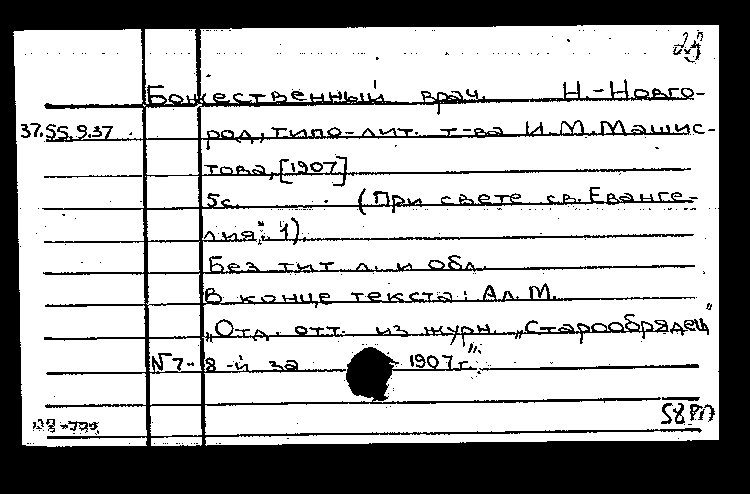 Божественный врач. Н.-Новго-
37.55.9.37 род, типо-лит. т-ва И.М.Машис-
това, [1907]
5с. (При свете св. Еванге-
лия". 1).
Без тит. л. и обл.
В конце текста: Ал. М.
„Отд. отт. из журн. „Старообрядец"
№7-8-й за 1907г."
58РП